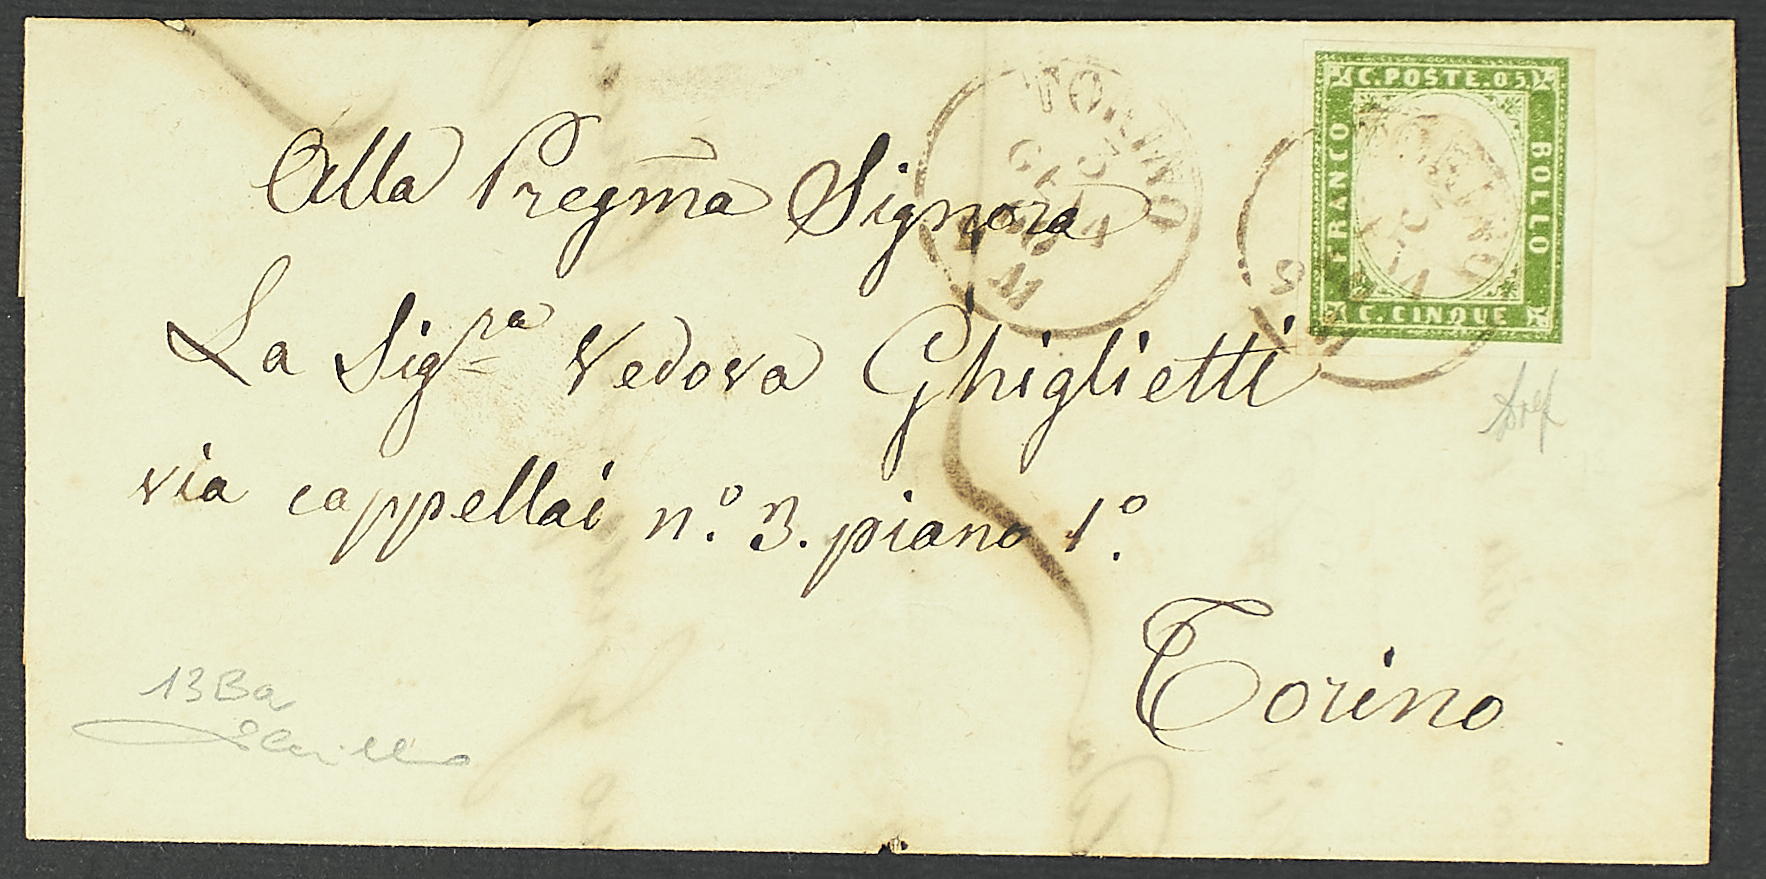 C. POSTE. 05
FRANCO
BOLLO
C. CINQUE
TORINO
TORINO
Alla Pregma Signora
La Sigra Vedova Ghiglietti
via cappellai n.o 3. piano 1.o
Torino
13Ba